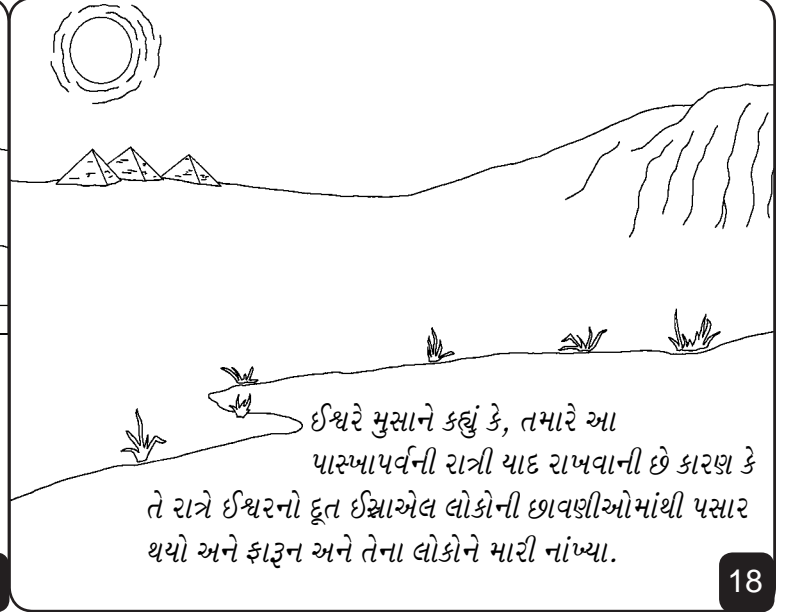 ઈશ્વરે મુસાને કહ્યું કે, તમારે આ
પાસ્ખાપર્વની રાત્રી યાદ રાખવાની છે કારણ કે
તે રાત્રે ઈશ્વરનો દૂત ઈસ્રાએલ લોકોની છાવણીઓમાંથી પસાર
થયો અને ફારૂન અને તેના લોકોને મારી નાંખ્યા.
18